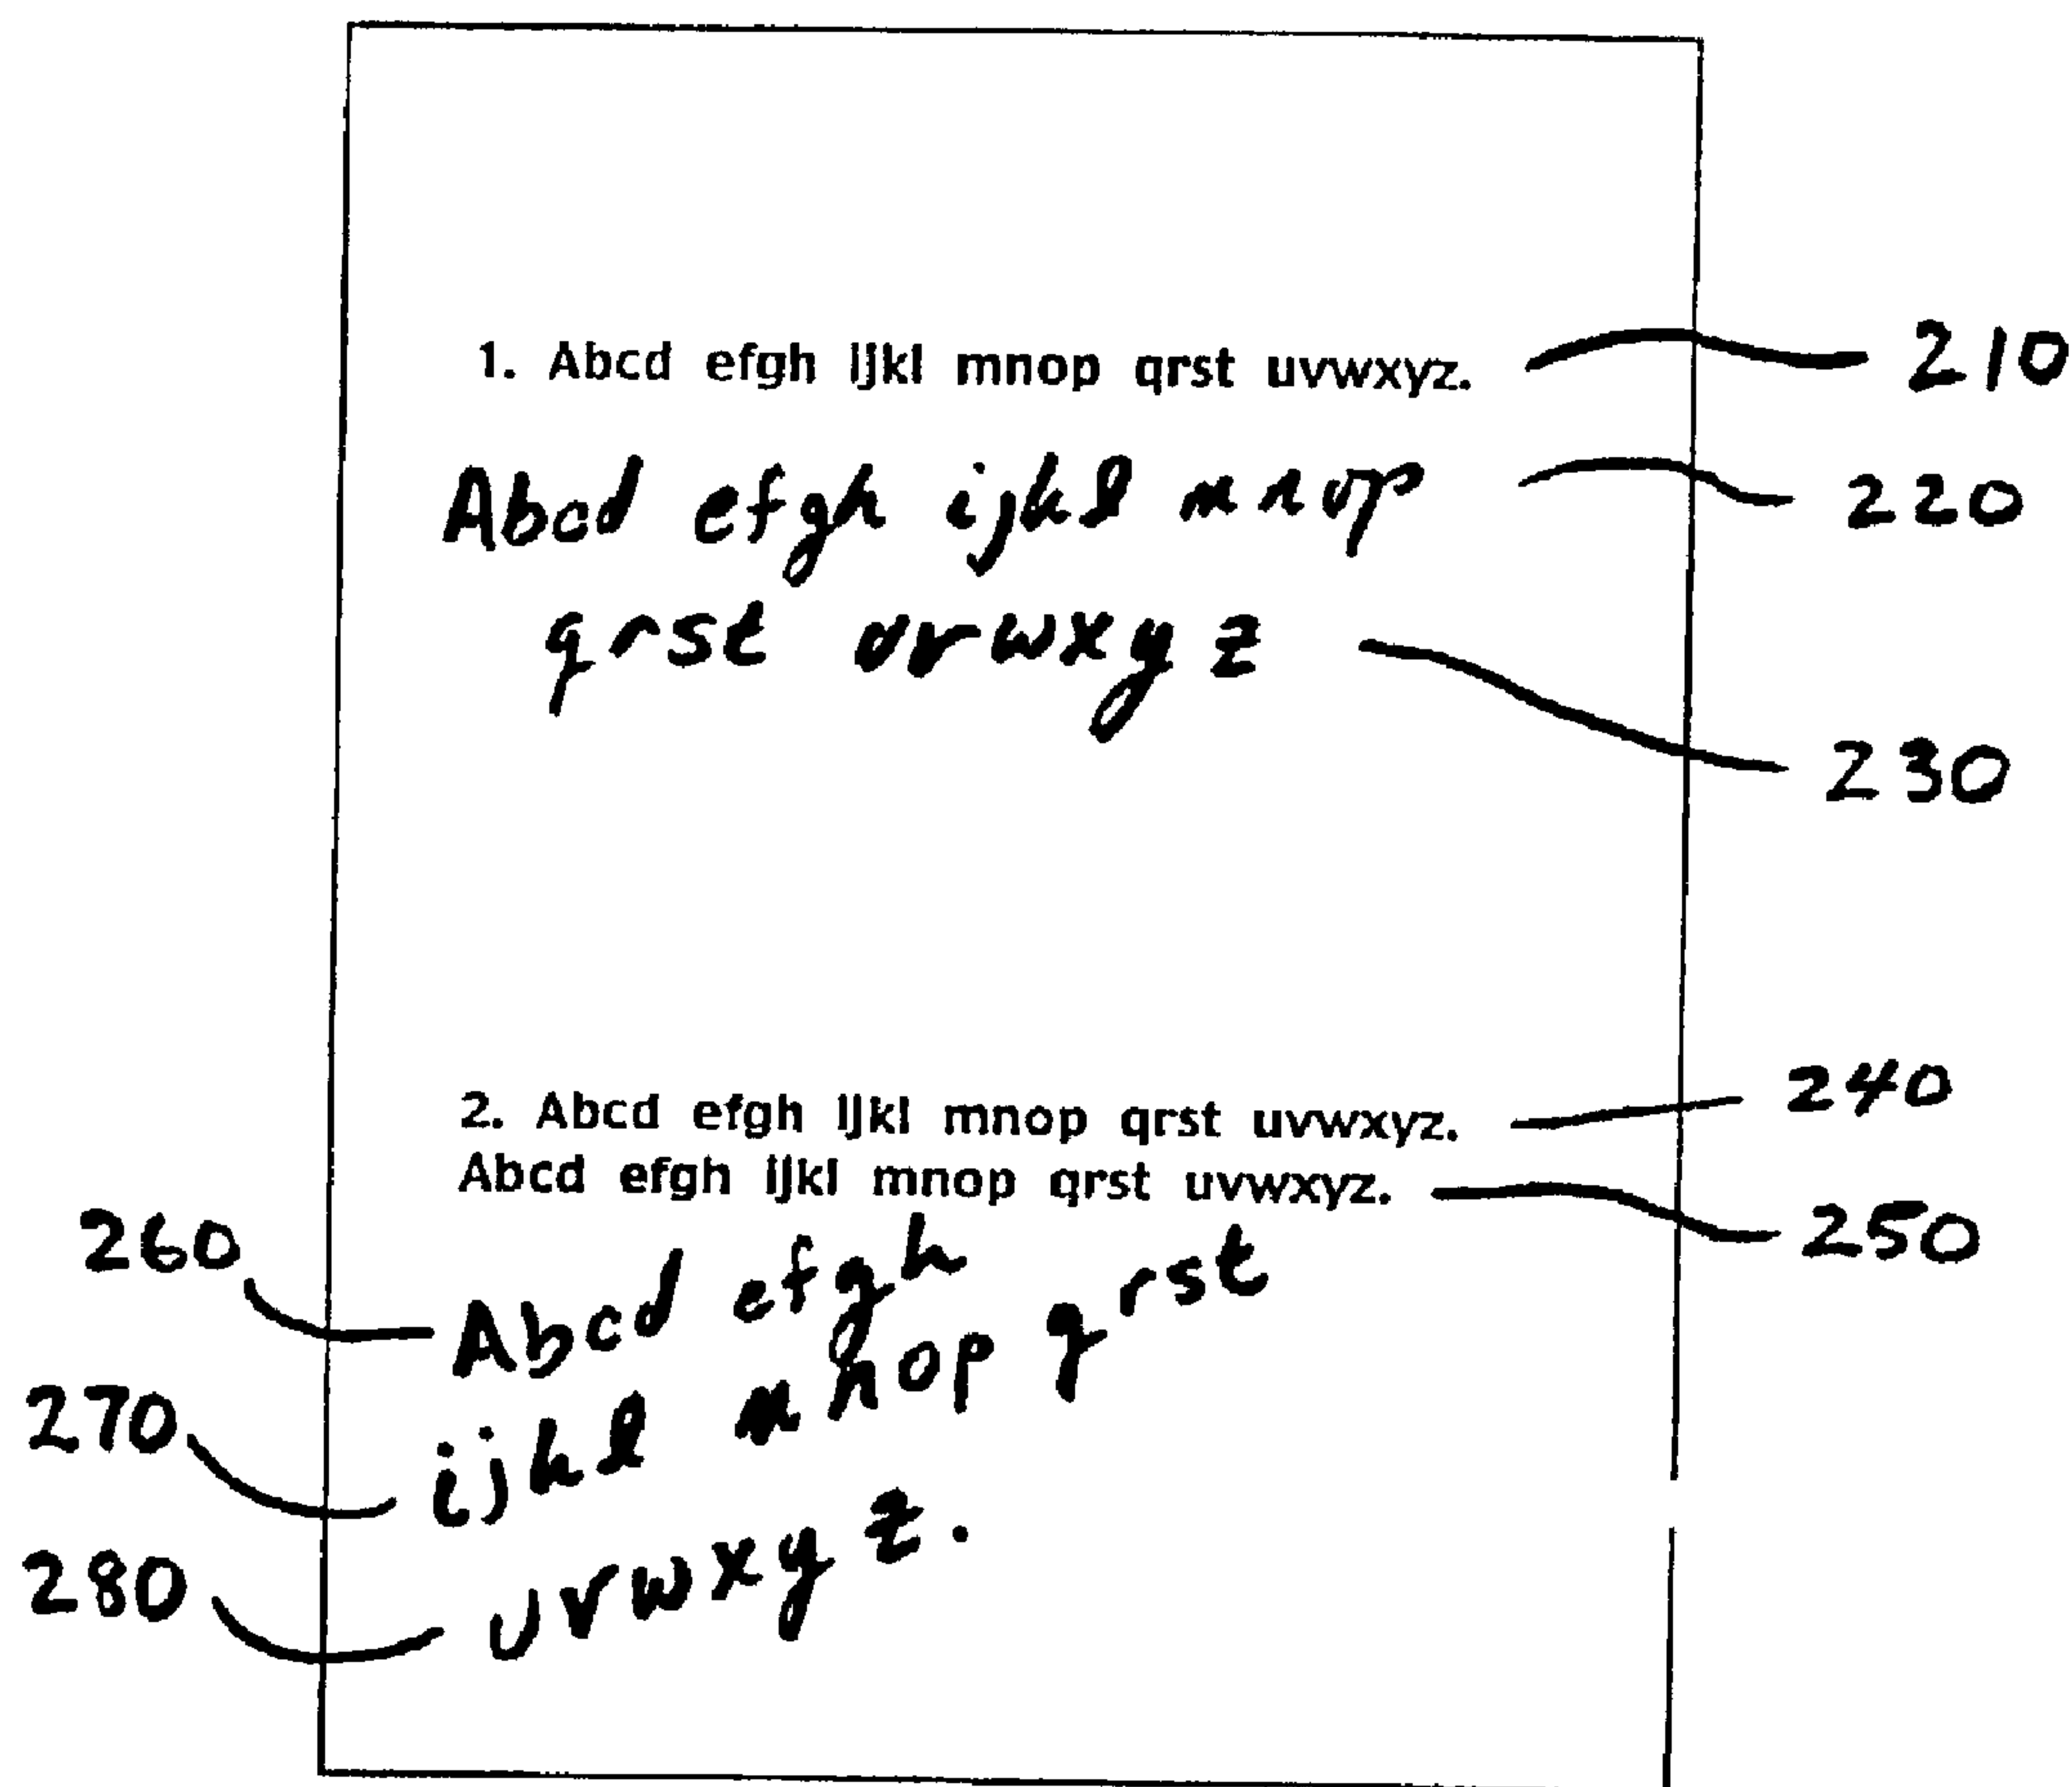 1. Abcd efgh ijkl mnop qrst uvwxyz. 210
Abcd efgh ijkl mnop 220
qrst uvwxyz 230
2. Abcd efgh ijkl mnop qrst uvwxyz. 240
Abcd efgh ijkl mnop qrst uvwxyz. 250
260 Abcd efgh qrst
270 ijkl mnop
280 uvwxyz.